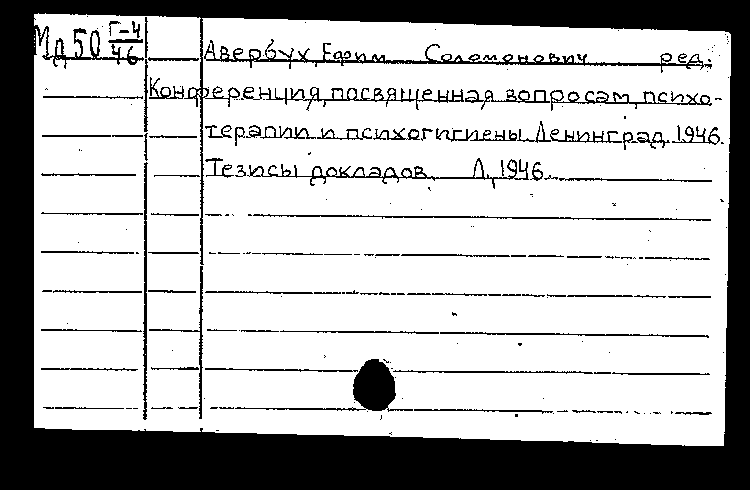 Мд50 Г-4/46
Авербух, Ефим Соломонович ред.
Конференция, посвященная вопросам психо-
терапии и психогигиены. Ленинград. 1946.
Тезисы докладов. Л., 1946.